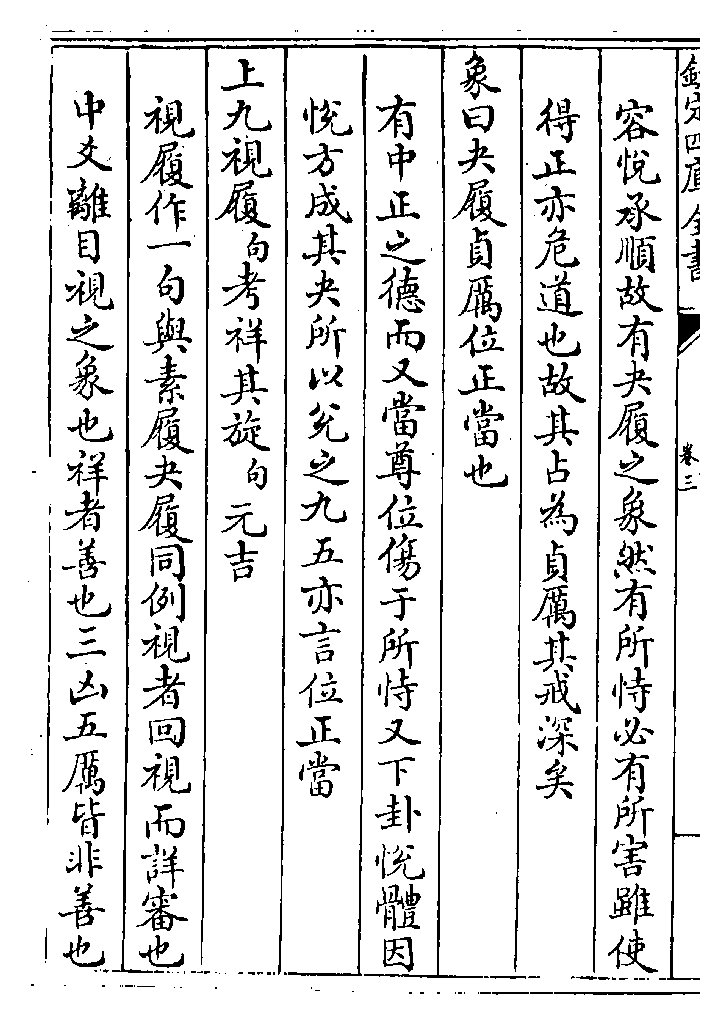 欽定四庫全書
卷三
容悅承順故有夬履之象然有所恃必有所害雖使
得正亦危道也故其占為貞厲其戒深矣
象曰夬履貞厲位正當也
有中正之德而又當尊位傷于所恃又下卦悅體因
悅方成其夬所以兊之九五亦言位正當
上九視履句考祥其旋句元吉
視履作一句與素履夬履同例視者回視而詳審也
中爻離目視之象也祥者善也三凶五厲皆非善也